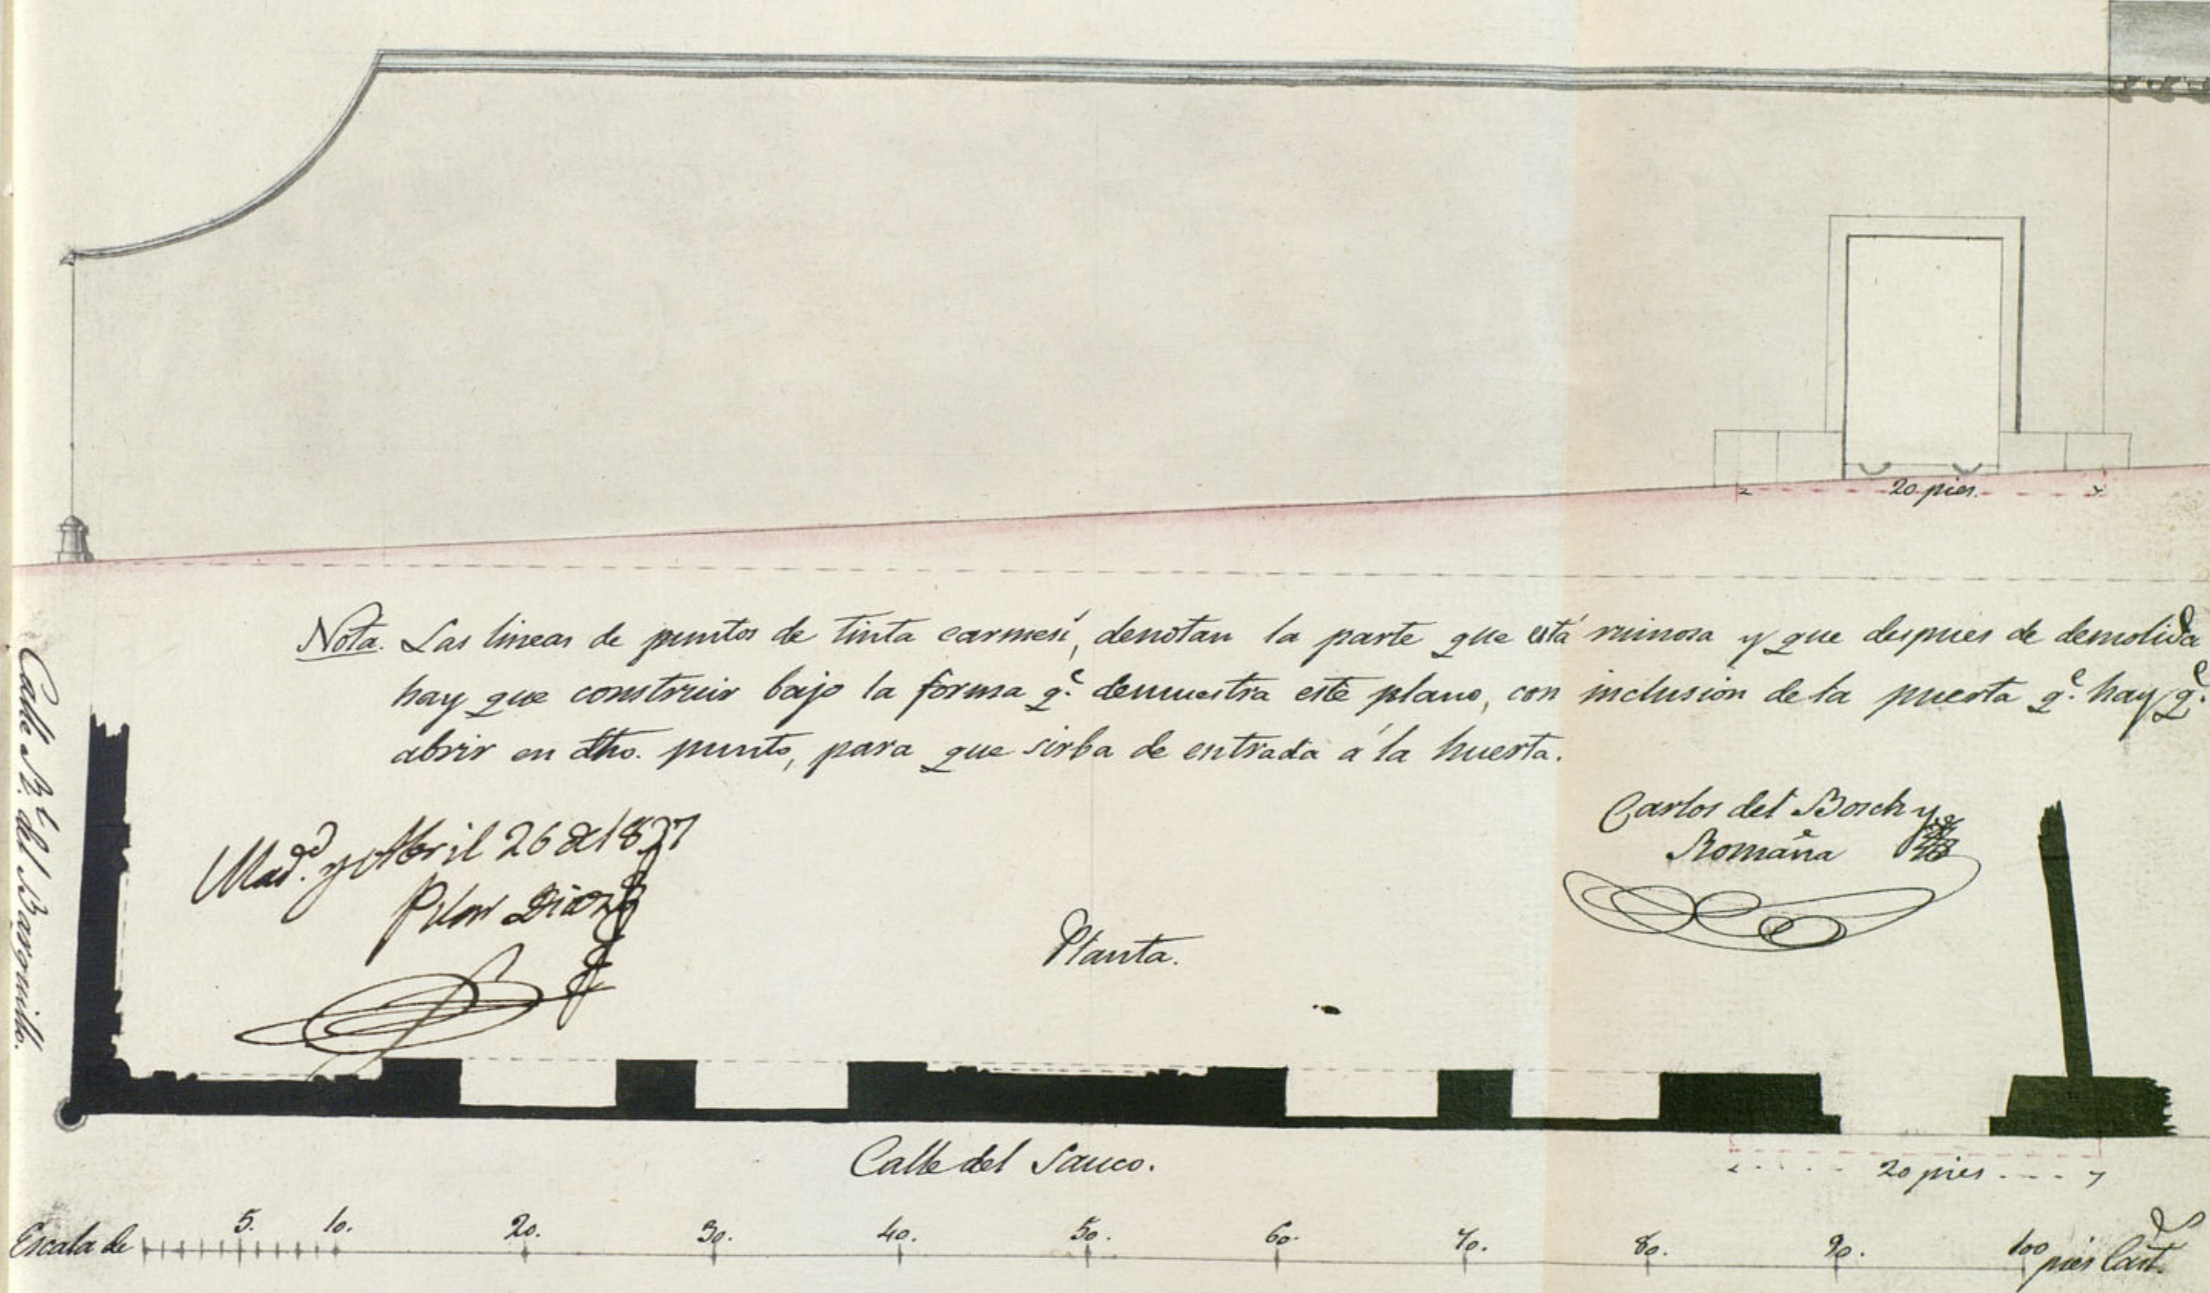 20 pies.
Nota. Las lineas de puntos de tinta carmesí, denotan la parte que está ruinosa y que despues de demolida
hay que construir bajo la forma q.e demuestra este plano, con inclusion de la puerta q.e hay q.e
abrir en dho. punto, para que sirba de entrada á la huerta.
Calle R.l del Barquillo.
Mad.d y Abril 26 de 1837
Pilar Diaz
Carlos del Bosch y
Romaña
Planta.
Calle del Sauco.
20 pies
Escala de 5. 10. 20. 30. 40. 50. 60. 70. 80. 90. 100 pies Cast.